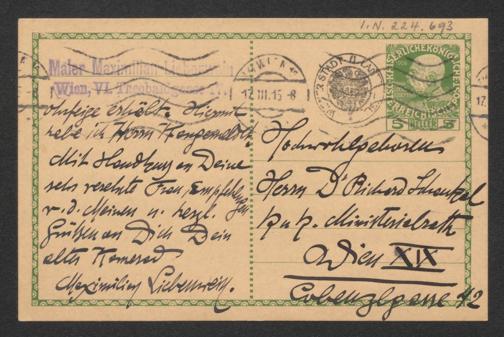 I.N. 224.693
Maler Maximilian Liebenwein
Wien, VI. Theobaldgasse
WIEN
17.III.15-8
5 HELLER 5
17.
Anzeige erhielt. Hiermit
habe ich Herrn
Mit Handkuss an Deine
sehr verehrte Frau, Empfehlg.
v. d. Meinen u. herzl.
Grüßen an Dich Dein
alter Kamerad
Maximilian Liebenwein.
Hochwohlgeboren
Herrn Dr Richard Schaukal
k. u. k. Ministerialrath
Wien XIX
Cobenzlgasse 42